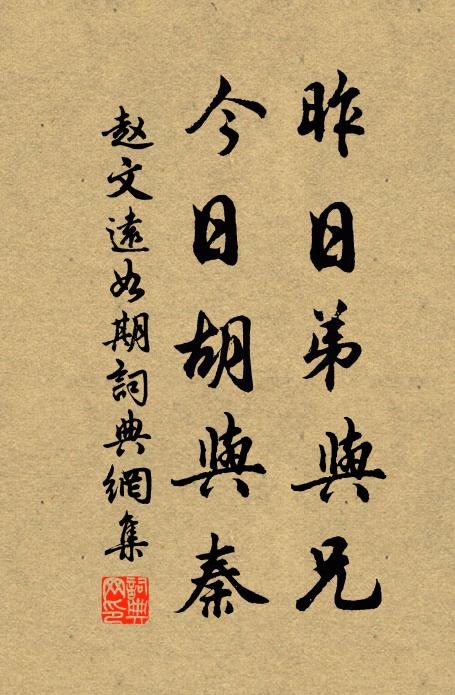 昨日弟與兄
今日胡與秦
赵文遠如期詞典網集
詞典网印